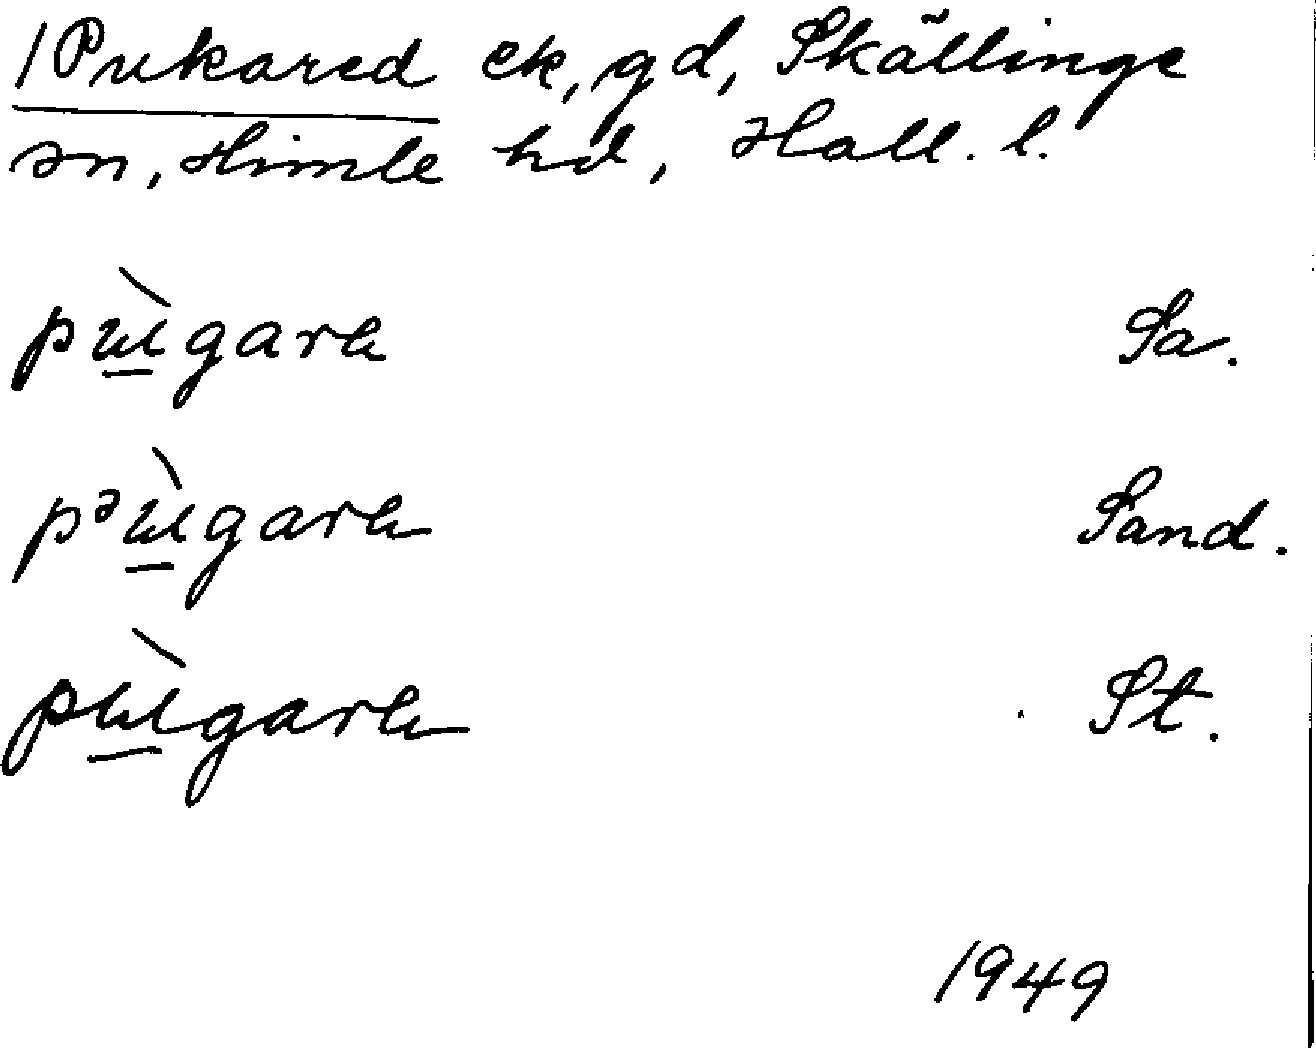 /Pukared ek, gd, Skällinge
sn, Himle hd, Hall. l.
pɯ̀gara Sa.
pᵊɯ̀gara Sand.
pɯ̀gara St.
1949